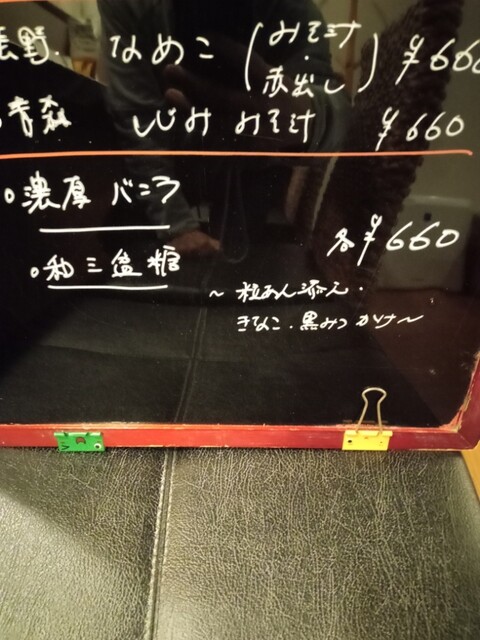 長野. なめこ (みそ汁・赤出し) ¥660
。青森 しじみ みそ汁 ¥660
。濃厚 バニラ
各¥660
。和三盆糖
~ 粒あん添え.
きなこ.黒みつ かけ~